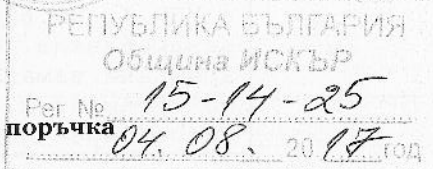 РЕПУБЛИКА БЪЛГАРИЯ
Община ИСКЪР
Рег. № 15-14-25
поръчка
04. 08. 2017 год